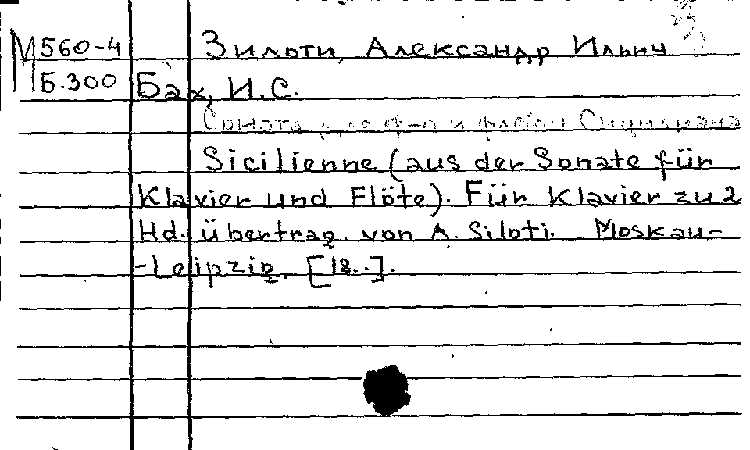 М 560-4 Зилоти, Александр Ильич
Б.300 Бах, И.С.
Соната для ф-п и флейты Сицилиана
Sicilienne (aus der Sonate für
Klavier und Flöte). Für Klavier zu 2
Hd. übertrag. von A. Siloti. Moskau-
-Leipzig. [18..].